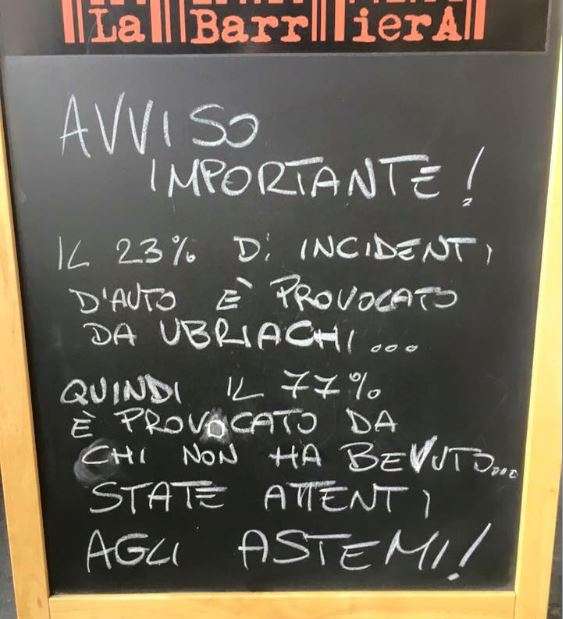 La Barr ierA
AVVISO
IMPORTANTE!
IL 23% Di INCIDENTI
D'AUTO È PROVOCATO
DA UBRIACHI...
QUINDI IL 77%
È PROVOCATO DA
CHI NON HA BEVUTO...
STATE ATTENTI
AGLI ASTEMI!